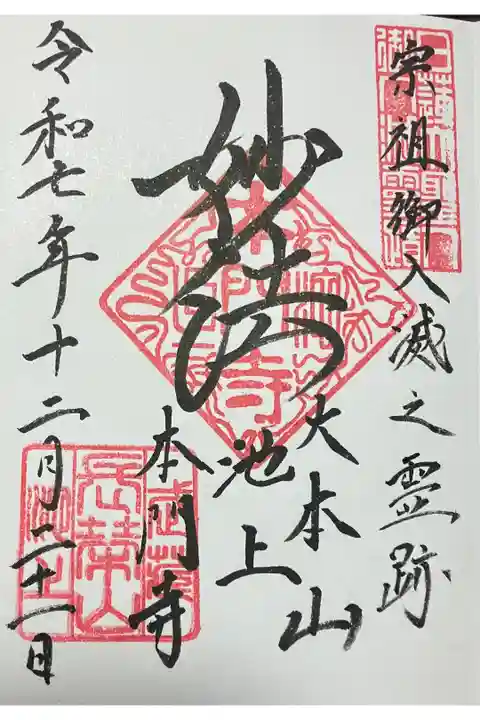 宗祖御入滅之霊跡
妙法
大本山
池上
本門寺
令和七年十二月二十一日